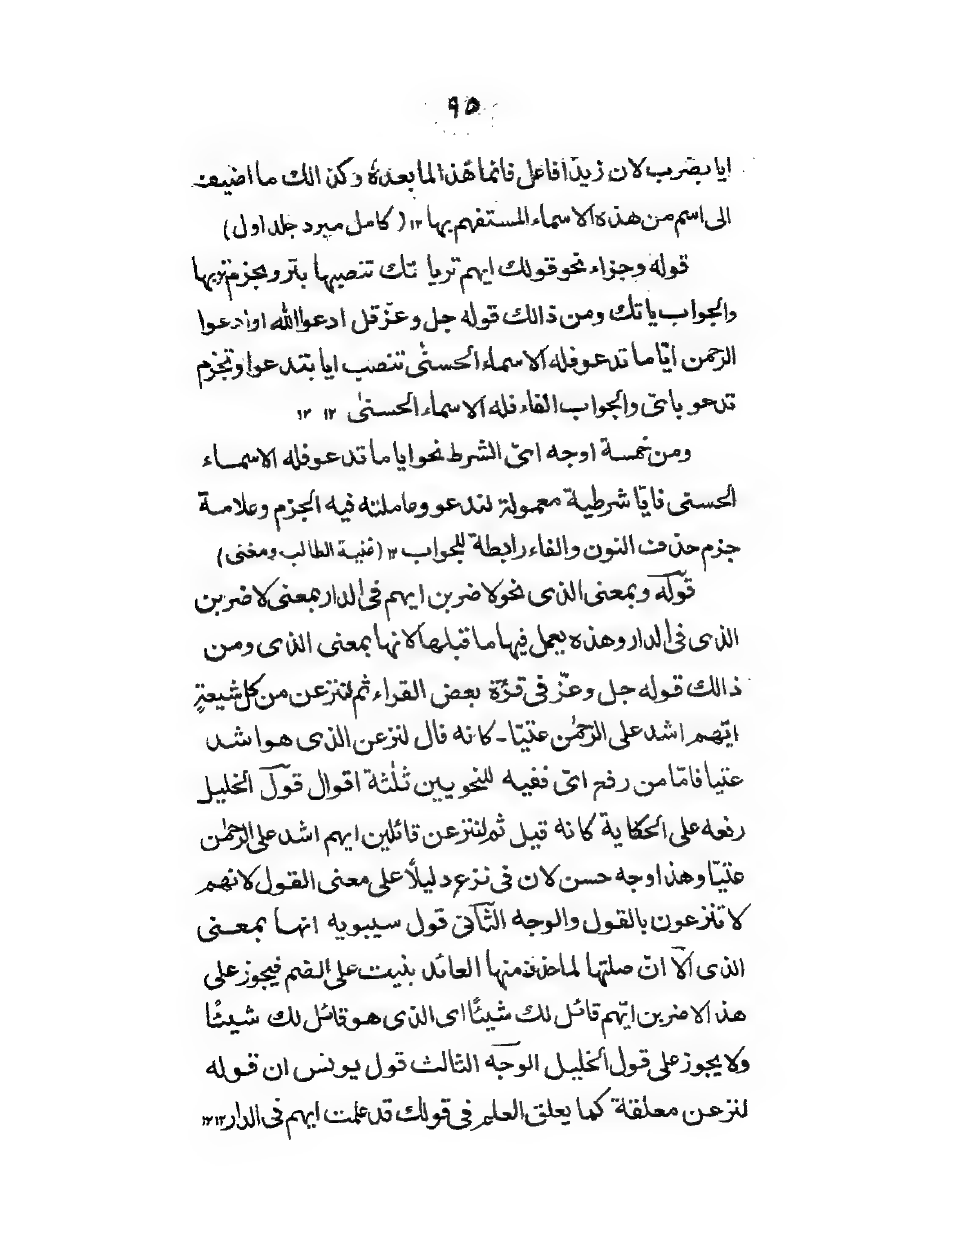 ۹۵
ايا بضرب لان زيدا فاعل فانما هذا لما بعده وكذالك ما اضيف
الى اسم من هذه الاسماء المستفهم بها ۱۲ (كامل مبرد جلد اول)
قوله وجزاء نحو قولك ايهم تر ياتك تنصبها بتر ويجزم تر بها
والجواب ياتك ومن ذالك قوله جل وعز قل ادعوا الله او ادعوا
الرحمن ايّا ما تدعو فله الاسماء الحسنٰى تنصب ايا بتدعوا وتجزم
تدعو باىّ والجواب الفاء فله الاسماء الحسنىٰ ۱۲ ۱۲
ومن خمسة اوجه اىّ الشرط نحو ايا ما تدعو فله الاسماء
الحسنى فايّا شرطية معمولة لتدعو وعاملته فيه الجزم وعلامة
جزم حذف النون والفاء رابطة للجواب ۱۲ (غنية الطالب ومغنى)
قوله وبمعنى الذى نحو لاضربن ايهم فى الدار بمعنى لاضربن
الذى فى الدار وهذه يعمل فيها ما قبلها لانها بمعنى الذى ومن
ذالك قوله جل وعزّ فى قرّة بعض القراء ثم لننزعن من كل شيعةٍ
ايّهم اشد على الرحمٰن عتيّا - كانه قال لنزعن الذى هو اشد
عتيا فامّا من رفع اىّ ففيه للنحويين ثلٰثة اقوال قول الخليل
رفعه على الحكاية كانه قيل ثم لننزعن قائلين ايهم اشد على الرحمٰن
عتيّا وهذا وجه حسن لان فى نزع دليلًا على معنى القول لانهم
لا تنزعون بالقول والوجه الثّانى قول سيبويه انها بمعنى
الذى الّا انّ صلتها لما حذف منها العائد بنيت على الضم فيجوز على
هذا لاضربن ايّهم قائل لك شيئًا اى الذى هو قائل لك شيئًا
ولا يجوز على قول الخليل الوجه الثالث قول يونس ان قوله
لنزعن معلقة كما يعلق العلم فى قولك قد علمت ايهم فى الدار ۱۲ ۱۲